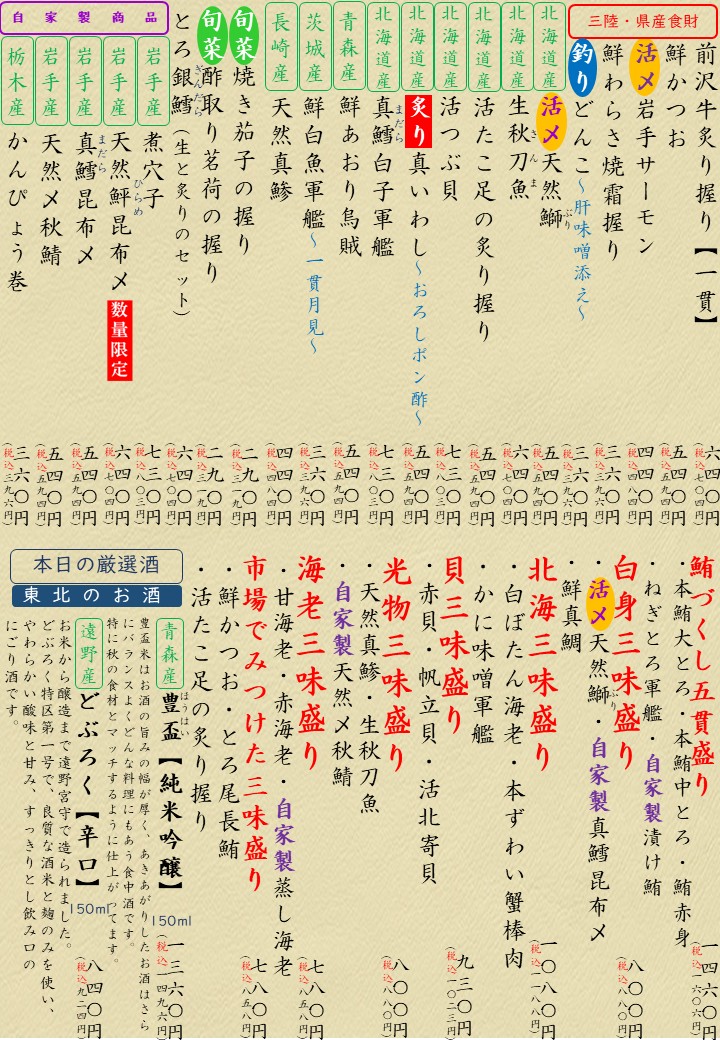 三陸・県産食財
前沢牛炙り握り【一貫】 六四〇円（税込七〇四円）
鮮かつお 五四〇円（税込五九四円）
活〆岩手サーモン 四四〇円（税込四八四円）
鮮わらさ焼霜握り 三六〇円（税込三九六円）
釣りどんこ～肝味噌添え～ 三六〇円（税込三九六円）
北海道産 活〆天然鰤 ぶり 五四〇円（税込五九四円）
北海道産 生秋刀魚 さんま 六四〇円（税込七〇四円）
北海道産 活たこ足の炙り握り 五四〇円（税込五九四円）
北海道産 活つぶ貝 七三〇円（税込八〇三円）
北海道産 炙り真いわし～おろしポン酢～ 五四〇円（税込五九四円）
北海道産 真鱈白子軍艦 まだら 七三〇円（税込八〇三円）
青森産 鮮あおり烏賊 五四〇円（税込五九四円）
茨城産 鮮白魚軍艦～一貫月見～ 三六〇円（税込三九六円）
長崎産 天然真鯵 四四〇円（税込四八四円）
旬菜 焼き茄子の握り 二九〇円（税込三一九円）
旬菜 酢取り茗荷の握り 二九〇円（税込三一九円）
とろ銀鱈 ぎんだら（生と炙りのセット） 六四〇円（税込七〇四円）
自家製商品
岩手産 煮穴子 七三〇円（税込八〇三円）
岩手産 天然鮃昆布〆 ひらめ 数量限定 六四〇円（税込七〇四円）
岩手産 真鱈昆布〆 まだら 五四〇円（税込五九四円）
岩手産 天然〆秋鯖 五四〇円（税込五九四円）
栃木産 かんぴょう巻 三六〇円（税込三九六円）
鮪づくし五貫盛り
・本鮪大とろ・本鮪中とろ・鮪赤身
・ねぎとろ軍艦・自家製漬け鮪
一四六〇円（税込一六〇六円）
白身三味盛り
・活〆天然鰤 ぶり・自家製真鱈昆布〆
・鮮真鯛
八〇〇円（税込八八〇円）
北海三味盛り
・白ぼたん海老・本ずわい蟹棒肉
・かに味噌軍艦
一〇八〇円（税込一一八八円）
貝三味盛り
・赤貝・帆立貝・活北寄貝
九三〇円（税込一〇二三円）
光物三味盛り
・天然真鯵・生秋刀魚
・自家製天然〆秋鯖
八〇〇円（税込八八〇円）
海老三味盛り
・甘海老・赤海老・自家製蒸し海老
七八〇円（税込八五八円）
市場でみつけた三味盛り
・鮮かつお・とろ尾長鮪
・活たこ足の炙り握り
七八〇円（税込八五八円）
本日の厳選酒
東北のお酒
青森産 豊盃 ほうはい【純米吟醸】 150ml 一三六〇円（税込一四九六円）
豊盃米はお酒の旨みの幅が厚く、あきあがりしたお酒はさら
にバランスよくどんな料理にもあう食中酒です。
特に秋の食材とマッチするように仕上がってます。
遠野産 どぶろく【辛口】 150ml 八四〇円（税込九二四円）
お米から醸造まで遠野宮守で造られました。
どぶろく特区第一号で、良質な酒米と麹のみを使い、
やわらかい酸味と甘み、すっきりとし飲み口の
にごり酒です。